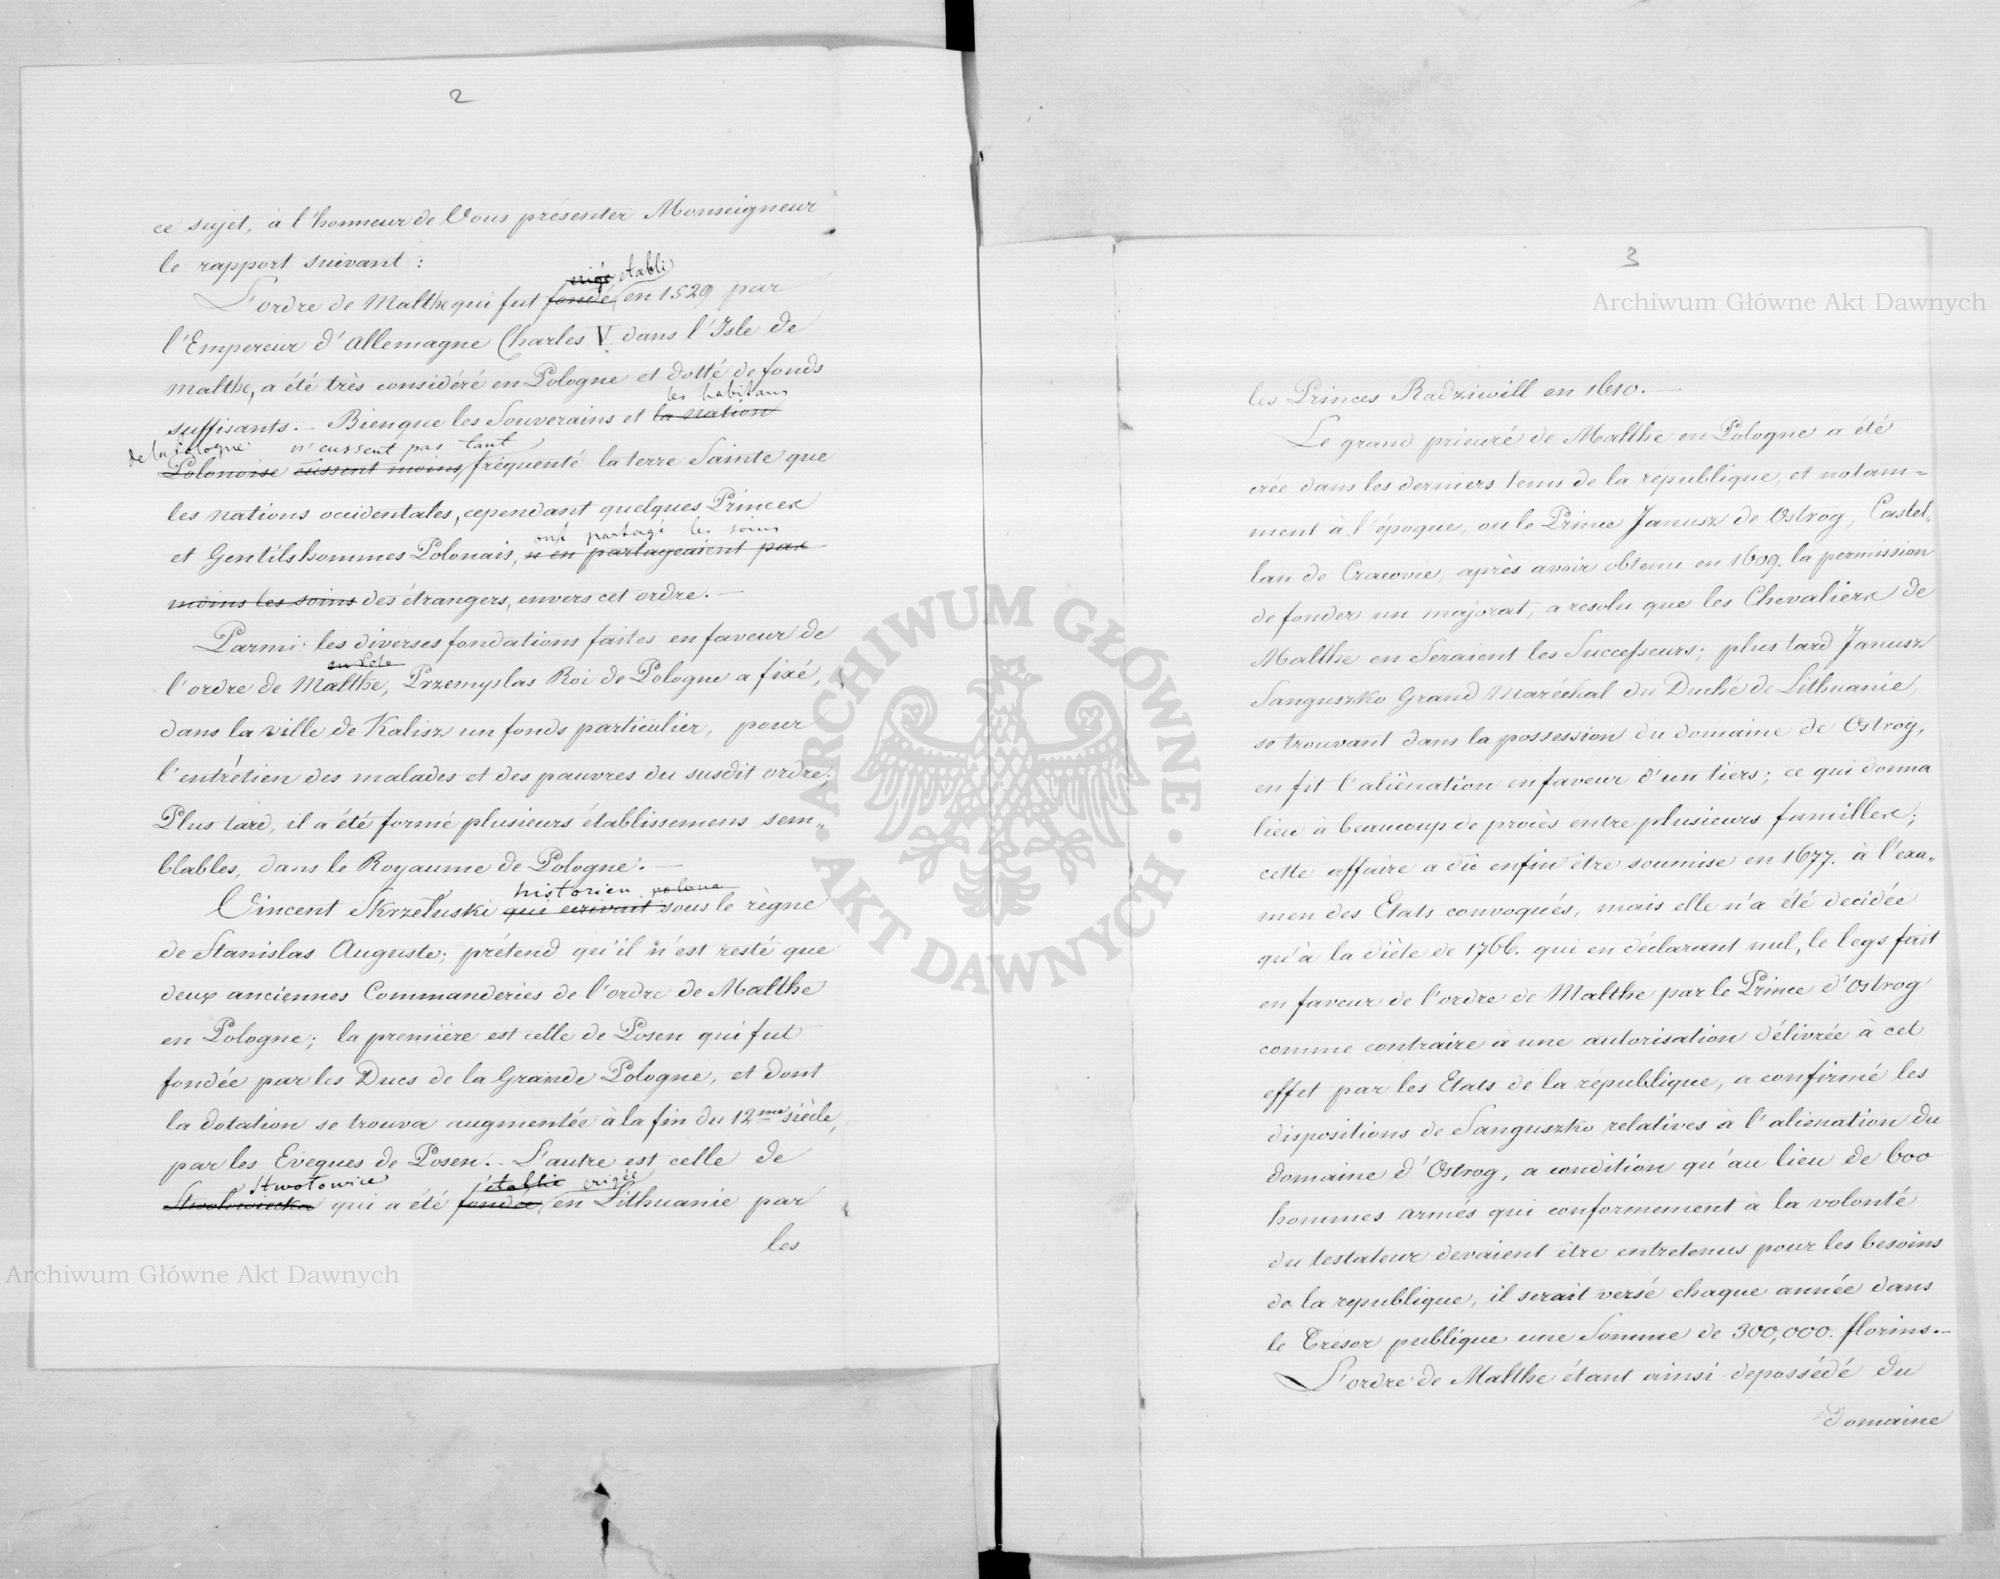 2
ce sujet, à l'honneur de Vous présenter Monseigneur
le rapport suivant :
erigé établi
L'ordre de Malthe qui fut fondé, en 1529 par
l'Empereur d'Allemagne Charles V. dans l'Isle de
Malthe, a été très considéré en Pologne et dotté de fonds
les habitans
suffisants. — Bienque les Souverains et la nation
de la Pologne n'eussent pas tant
Polonoise eussent moins fréquenté la terre Sainte que
les nations occidentales, cependant quelques Princes
ont partagé les soins
et Gentilshommes Polonais, n'en partageaient pas
moins les soins des étrangers, envers cet ordre. —
Parmi les diverses fondations faites en faveur de
l'ordre de Malthe, Przemyslas Roi de Pologne a fixé,
dans la ville de Kalisz un fonds particulier, pour
l'entrétien des malades et des pauvres du susdit ordre;
Plus tard, il a été formé plusieurs établissemens sem„
blables, dans le Royaume de Pologne. —
historien polona
Vincent Skrzetuski qui ecrivait sous le règne
de Stanislas Auguste; prétend qu'il n'est resté que
deux anciennes Commanderies de l'ordre de Malthe
en Pologne; la première est celle de Posen qui fut
fondée par les Ducs de la Grande Pologne, et dont
la dotation se trouva augmentée à la fin du 12me siècle,
par les Eveques de Posen. - L'autre est celle de
Stwolowice établie erigée
Stwolowiecka qui a été fondée, en Lithuanie par
les
3
les Princes Radziwill en 1610. —
Le grand prieuré de Malthe en Pologne a été
crée dans les derniers tems de la république, et notam=
ment à l'époque, ou le Prince Janusz de Ostrog, Castel„
lan de Cracovie, après avoir obtenu en 1609. la permission
de fonder un majorat, a resolu que les Chevaliers de
Malthe en Seraient les Successeurs; plus tard Janusz
Sanguszko Grand Maréchal du Duché de Lithuanie,
se trouvant dans la possession du domaine de Ostrog,
en fit l'aliènation en faveur d'un tiers; ce qui donna
lieu à beaucoup de procès entre plusieurs familles;
cette affaire a dû enfin être soumise en 1677. à l'exa„
men des Etats convoqués, mais elle n'a été decidée
qu'à la diète de 1766. qui en déclarant nul, le legs fait
en faveur de l'ordre de Malthe par le Prince d'Ostrog
comme contraire à une autorisation délivrée à cet
effet par les Etats de la république, a confirmé les
dispositions de Sanguszko relatives à l'aliénation du
domaine d'Ostrog, a condition qu'au lieu de 600
hommes armés qui conformement à la volonté
du testateur devaient être entretenus pour les besoins
de la republique, il serait versé chaque année dans
le Trésor publique une Somme de 300,000. florins. —
L'ordre de Malthe étant ainsi depossédé du
domaine
Archiwum Główne Akt Dawnych
Archiwum Główne Akt Dawnych
ARCHIWUM GŁÓWNE · AKT DAWNYCH ·